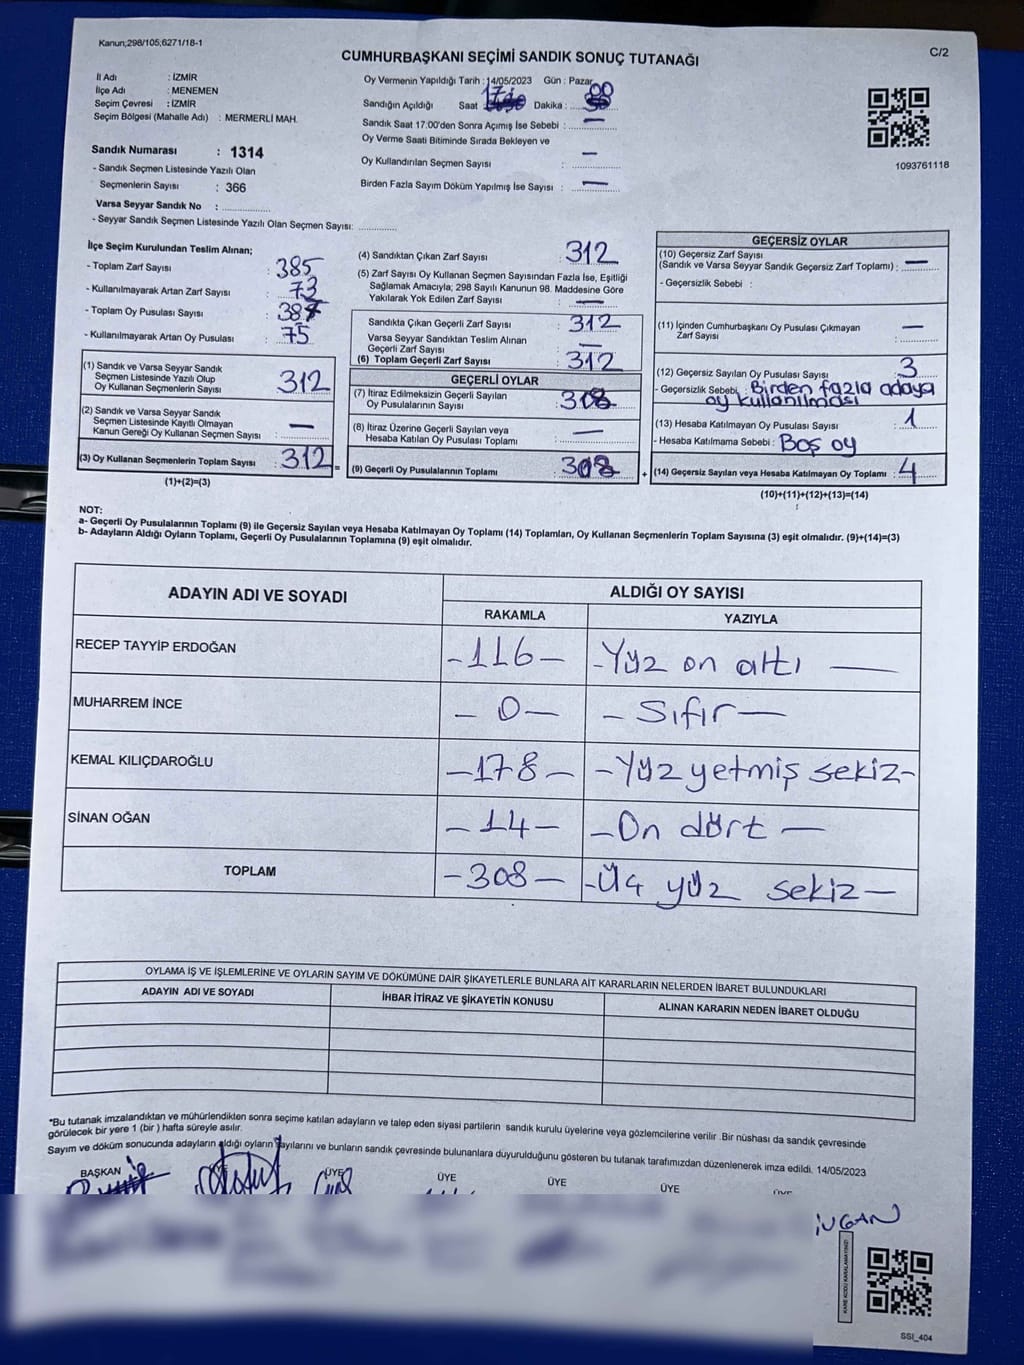 Kanun;298/105;6271/18-1
C/2
CUMHURBAŞKANI SEÇİMİ SANDIK SONUÇ TUTANAĞI
İl Adı : İZMİR
İlçe Adı : MENEMEN
Seçim Çevresi : İZMİR
Seçim Bölgesi (Mahalle Adı) : MERMERLİ MAH.
Sandık Numarası : 1314
- Sandık Seçmen Listesinde Yazılı Olan
Seçmenlerin Sayısı : 366
Varsa Seyyar Sandık No : ................
- Seyyar Sandık Seçmen Listesinde Yazılı Olan Seçmen Sayısı: ............
Oy Vermenin Yapıldığı Tarih : 14/05/2023 Gün : Pazar
Sandığın Açıldığı Saat 17 Dakika : 00
Sandık Saat 17.00'den Sonra Açımış İse Sebebi : —
Oy Verme Saati Bitiminde Sırada Bekleyen ve
Oy Kullandırılan Seçmen Sayısı : —
Birden Fazla Sayım Döküm Yapılmış İse Sayısı : —
1093761118
İlçe Seçim Kurulundan Teslim Alınan;
- Toplam Zarf Sayısı : 385
- Kullanılmayarak Artan Zarf Sayısı : 73
- Toplam Oy Pusulası Sayısı : 387
- Kullanılmayarak Artan Oy Pusulası : 75
(1) Sandık ve Varsa Seyyar Sandık
Seçmen Listesinde Yazılı Olup
Oy Kullanan Seçmenlerin Sayısı : 312
(2) Sandık ve Varsa Seyyar Sandık
Seçmen Listesinde Kayıtlı Olmayan
Kanun Gereği Oy Kullanan Seçmen Sayısı : —
(3) Oy Kullanan Seçmenlerin Toplam Sayısı : 312 =
(1)+(2)=(3)
(4) Sandıktan Çıkan Zarf Sayısı : 312
(5) Zarf Sayısı Oy Kullanan Seçmen Sayısından Fazla İse, Eşitliği
Sağlamak Amacıyla; 298 Sayılı Kanunun 98. Maddesine Göre
Yakılarak Yok Edilen Zarf Sayısı : —
Sandıkta Çıkan Geçerli Zarf Sayısı : 312
Varsa Seyyar Sandıktan Teslim Alınan
Geçerli Zarf Sayısı :
(6) Toplam Geçerli Zarf Sayısı : 312
GEÇERLİ OYLAR
(7) İtiraz Edilmeksizin Geçerli Sayılan
Oy Pusulalarının Sayısı : 308
(8) İtiraz Üzerine Geçerli Sayılan veya
Hesaba Katılan Oy Pusulası Toplamı : —
(9) Geçerli Oy Pusulalarının Toplamı : 308 +
GEÇERSİZ OYLAR
(10) Geçersiz Zarf Sayısı
(Sandık ve Varsa Seyyar Sandık Geçersiz Zarf Toplamı) : —
- Geçersizlik Sebebi :
(11) İçinden Cumhurbaşkanı Oy Pusulası Çıkmayan
Zarf Sayısı : —
(12) Geçersiz Sayılan Oy Pusulası Sayısı : 3
- Geçersizlik Sebebi : Birden fazla adaya
oy kullanılması
(13) Hesaba Katılmayan Oy Pusulası Sayısı : 1
- Hesaba Katılmama Sebebi : Boş oy
(14) Geçersiz Sayılan veya Hesaba Katılmayan Oy Toplamı : 4
(10)+(11)+(12)+(13)=(14)
NOT:
a- Geçerli Oy Pusulalarının Toplamı (9) ile Geçersiz Sayılan veya Hesaba Katılmayan Oy Toplamı (14) Toplamları, Oy Kullanan Seçmenlerin Toplam Sayısına (3) eşit olmalıdır. (9)+(14)=(3)
b- Adayların Aldığı Oyların Toplamı, Geçerli Oy Pusulalarının Toplamına (9) eşit olmalıdır.
ADAYIN ADI VE SOYADI ALDIĞI OY SAYISI
RAKAMLA YAZIYLA
RECEP TAYYİP ERDOĞAN -116- -Yüz on altı —
MUHARREM İNCE - 0 - - Sıfır —
KEMAL KILIÇDAROĞLU -178- -Yüz yetmiş sekiz-
SİNAN OĞAN -14- -On dört —
TOPLAM -308- -Üç yüz sekiz—
OYLAMA İŞ VE İŞLEMLERİNE VE OYLARIN SAYIM VE DÖKÜMÜNE DAİR ŞİKAYETLERLE BUNLARA AİT KARARLARIN NELERDEN İBARET BULUNDUKLARI
ADAYIN ADI VE SOYADI İHBAR İTİRAZ VE ŞİKAYETİN KONUSU ALINAN KARARIN NEDEN İBARET OLDUĞU
*Bu tutanak imzalandıktan ve mühürlendikten sonra seçime katılan adayların ve talep eden siyasi partilerin sandık kurulu üyelerine veya gözlemcilerine verilir .Bir nüshası da sandık çevresinde
görülecek bir yere 1 (bir ) hafta süreyle asılır.
Sayım ve döküm sonucunda adayların aldığı oyların sayılarını ve bunların sandık çevresinde bulunanlara duyurulduğunu gösteren bu tutanak tarafımızdan düzenlenerek imza edildi. 14/05/2023
BAŞKAN ÜYE ÜYE ÜYE ÜYE ÜYE
KARE KODU KARALAMAYINIZ!
SSI_404